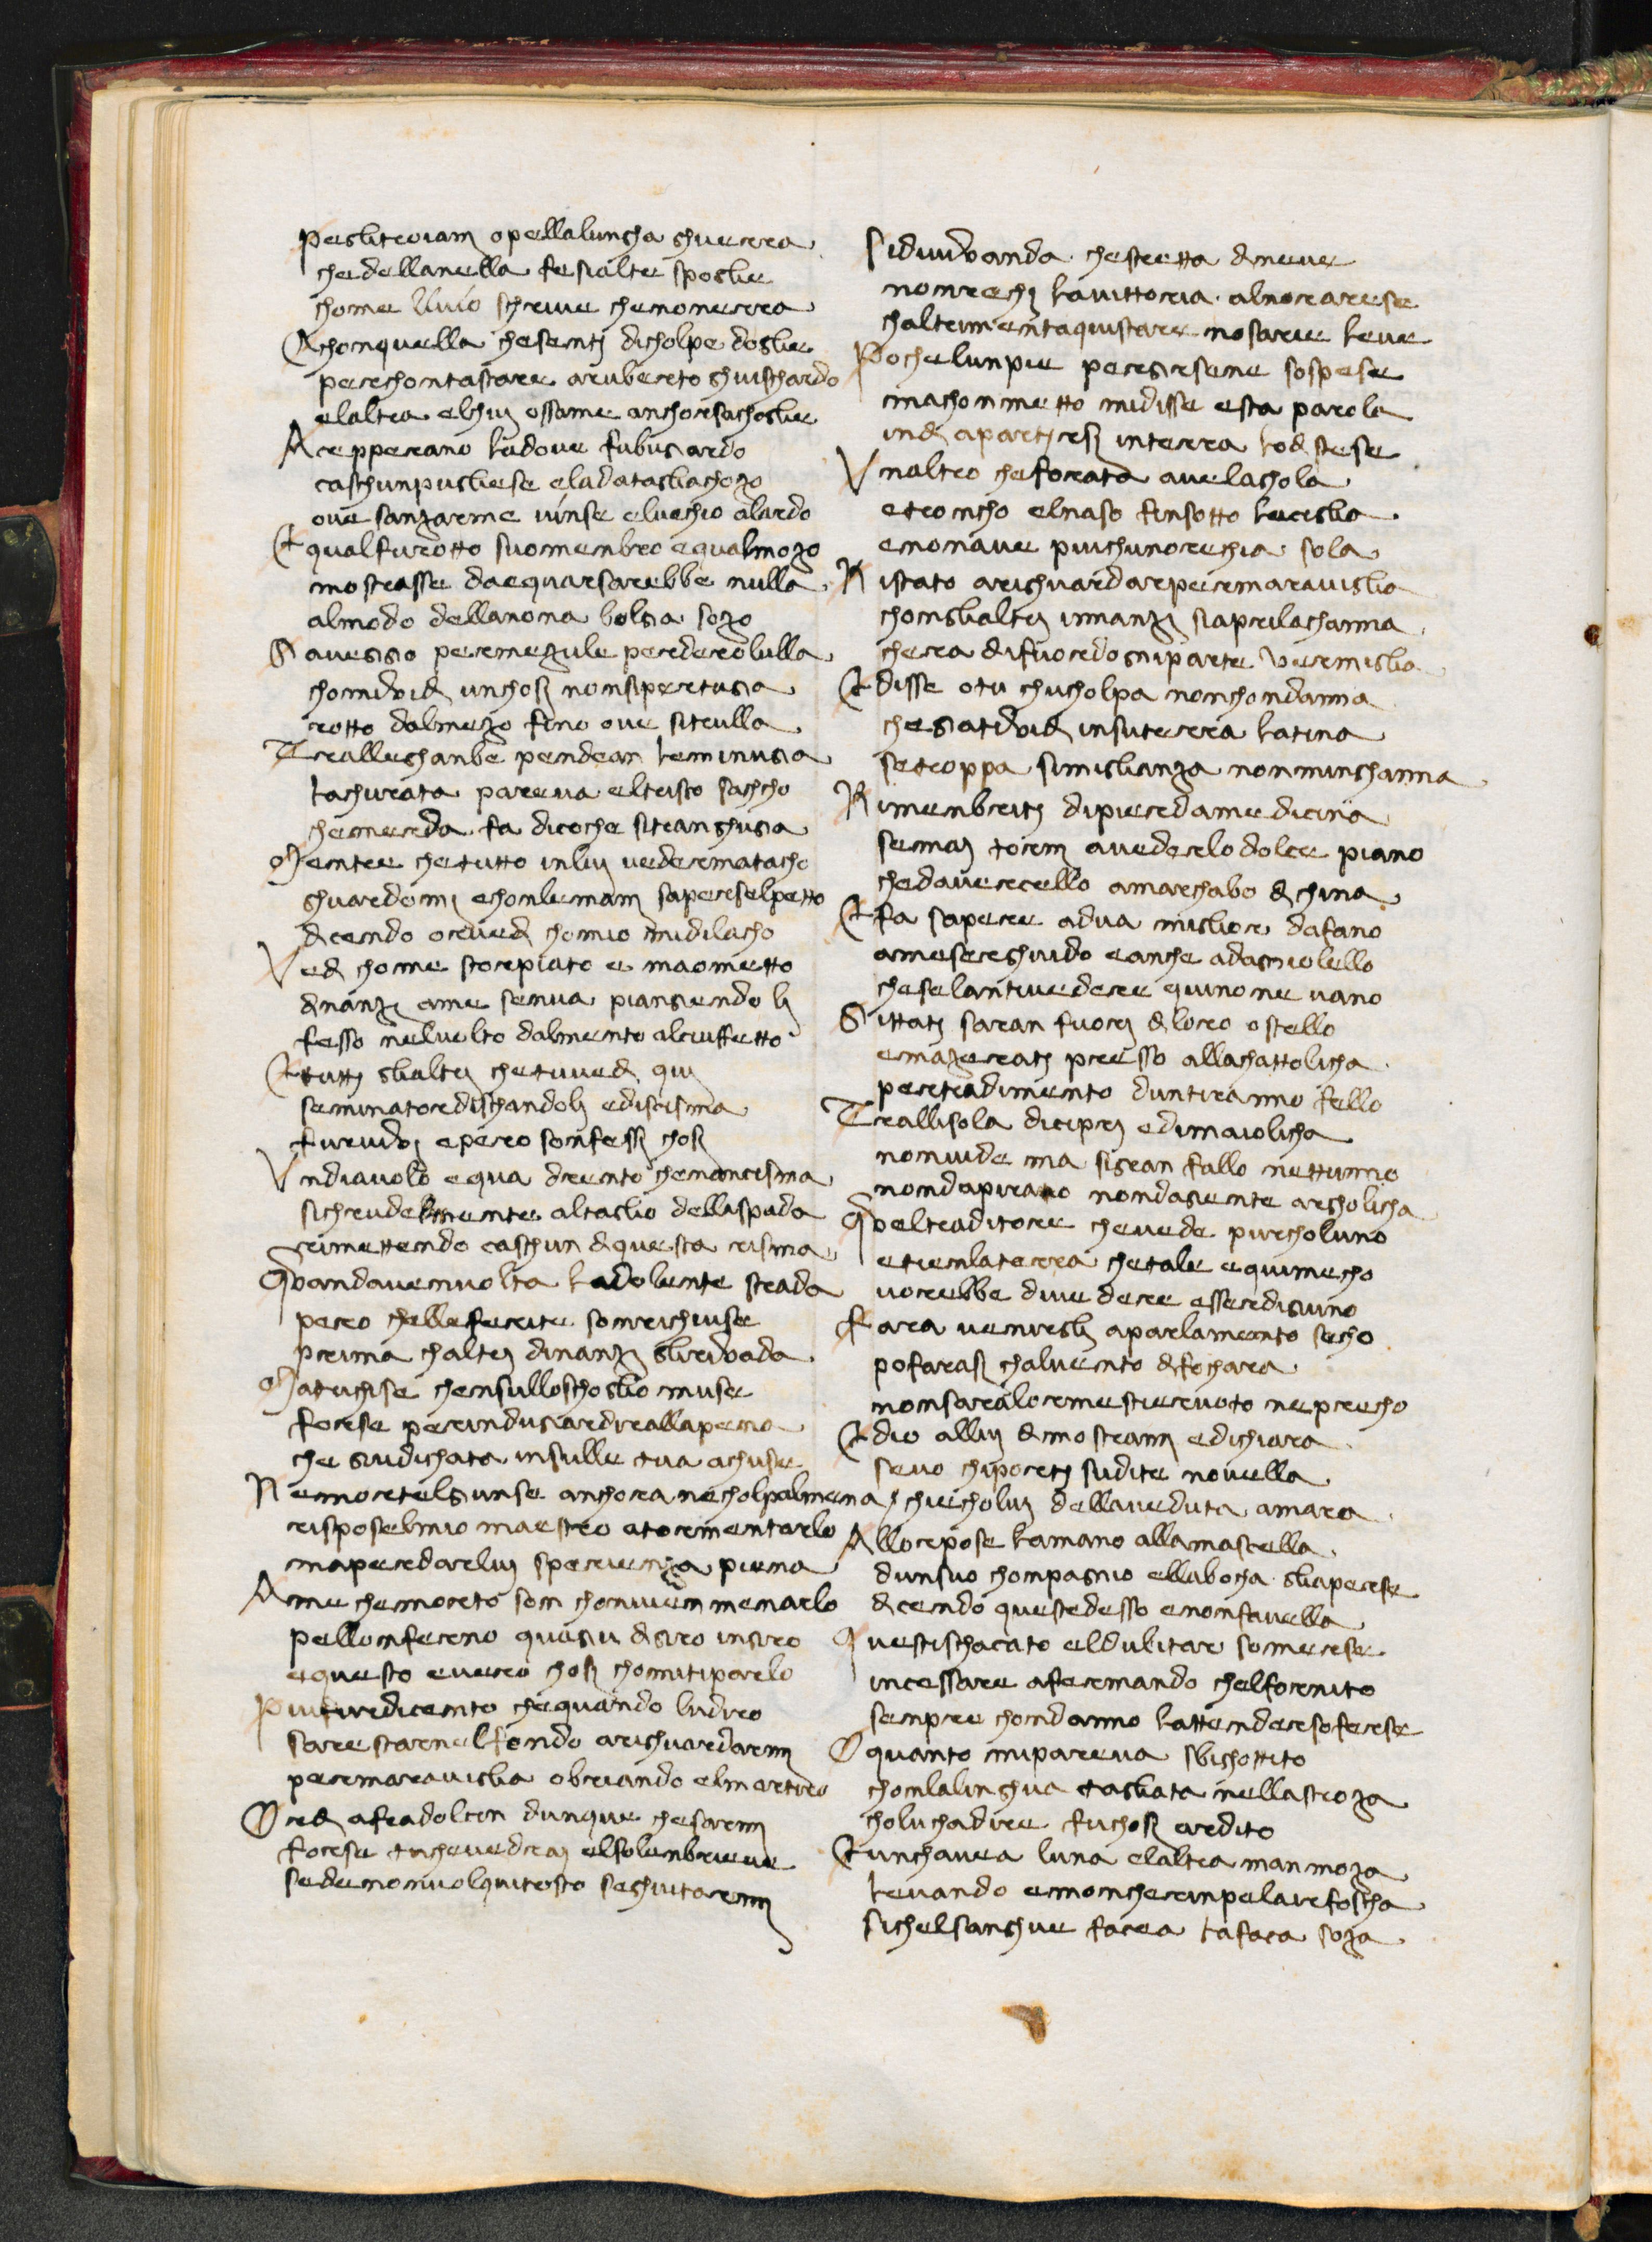 Pesliteoiani opellalunga ghuerra
chedellanella fesialte spoglie
chome lluio schriue chenonerra
Achonquella chesenti dicholpe doglie
perchontastare aruberto ghuischardo
elaltra elchui ossame anchorsachoglie
Acepperano ladoue fubugardo
caschunpugliese eladatagliachozo
oue sanzarme uinse eluechio alardo
Et qualfurotto suomenbro equalmozo
mostrasse daequarsarebbe nulla
almodo dellanona bolgia sozo
Gia ueggio permezule perderolulla
chomiuidi unchosi nonsipertugia
rotto dalmezo fino oue sitrulla
Trallechanbe pendean leminugia
lachurata pareua eltristo sachcho
chemerda fa dicoche sitranghugia
Mentre chetutto inlui uedermatacho
ghuardomi echonlemani saperselpetto
dicendo oruedi chomio midilacho
Vedi chome storpiato e maometto
dinanzi ame senua piangendo li
fesso neluolto dalmento alciuffetto
Et tutti glialtri chetuuedi qui
seminatordischandoli ediscisma
furuiui epero sonfessi chosi
Vndiauolo equa drento chenoncisma
sichrudelmente altaglio dellaspada
rimettendo caschun diquesta risma
Quandauenuolta ladolente strada
pero chelleferite sonrichiuse
prima chaltri dinanzi gliriuada
Matuchise chensulloschoglio muse
forse perindugiardireallapena
che giudichata insulle tua achuse
Nemortelgiunse anchora necholpalmena
risposelmio maestro atormentarlo
maperdarlui sperienza piena
Ame chemorto son chonuien menarlo
pellonferno quagiu digiro ingiro
equesto euero chosi chomitiparlo
Piufurdicento chequando ludiro
sarestarnelfondo arighuardarmi
permarauiglia obriando elmartiro
Ordi afradolcin dunque chesarmi
forse tucheuedrai elsolenbrieue
sedenonuolquitosto seghuitarmi
Sidiuiuanda chestretta dineue
nonrechi lauittoria alnoarese
chaltrimentaquistare nosarie leue
Pochelunpie pergirsene sospese
machonmetto midisse esta parola
indi apartirsi interra lodistese
Vnaltro cheforata auelaghola
etroncho elnaso finsotto leciglia
enonaue piuchunorechia sola
Ristato arighuardarpermarauiglia
chonglialtri innanzi siaprilachanna
chera difuordogniparte vermiglia
Et disse otu chuicholpa nonchondanna
chegiatiuidi insuterra latina
setroppa simiglianza nonminghanna
Rimenbriti dipierdamedicina
semai torni auederlo dolce piano
chedauercello amarchabo dichina
Et fa sapere adua miglior dafano
amesserghuido eanche adagniolello
cheselantiuedere quinone uano
Gittati saran fuori diloro ostello
emazerati presso allachattolicha
pertradimento duntiranno fello
Trallisola dicipri edimaiolicha
nonuide ma sigran fallo nettunno
nondapirato nondagente argholicha
Queltraditore cheuede purcholuno
etienlaterra chetale equimecho
uorebbe diue dere esserdigiuno
Fara uenirgli aparlamento secho
pofarasi chaluento difochara
nonsaralormestieruoto neprecho
Et dio allui dimostrami edichiara
seuo chiporti sudite nouella
chiecholui dellaueduta amara
Allorpose lamano allamascella
dunsuo chompagnio ellabocha gliaperse
dicendo questedesso enonfauella
Questischacato eldubitar somerse
incessare afermando chelfornito
senpre chondanno lattendersoferse
O quanto mipareua sbighottito
chonlalinghua tagliata nellastroza
cholu chadire fuchosi ardito
Et unchauea luna elaltra manmoza
leuando emoncherinpelairefoscha
sichelsanghue facea lafaca soza